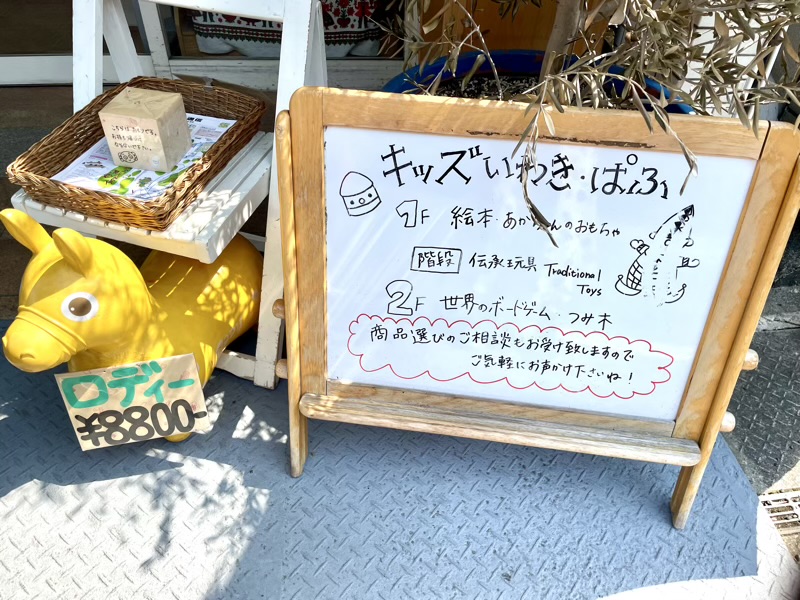 キッズいわき・ぱふ
1F 絵本・あかちゃんのおもちゃ
階段 伝承玩具 Traditional
Toys
2F 世界のボードゲーム・つみ木
商品選びのご相談もお受け致しますので
ご気軽にお声かけ下さいね!
ロディー
¥8800-